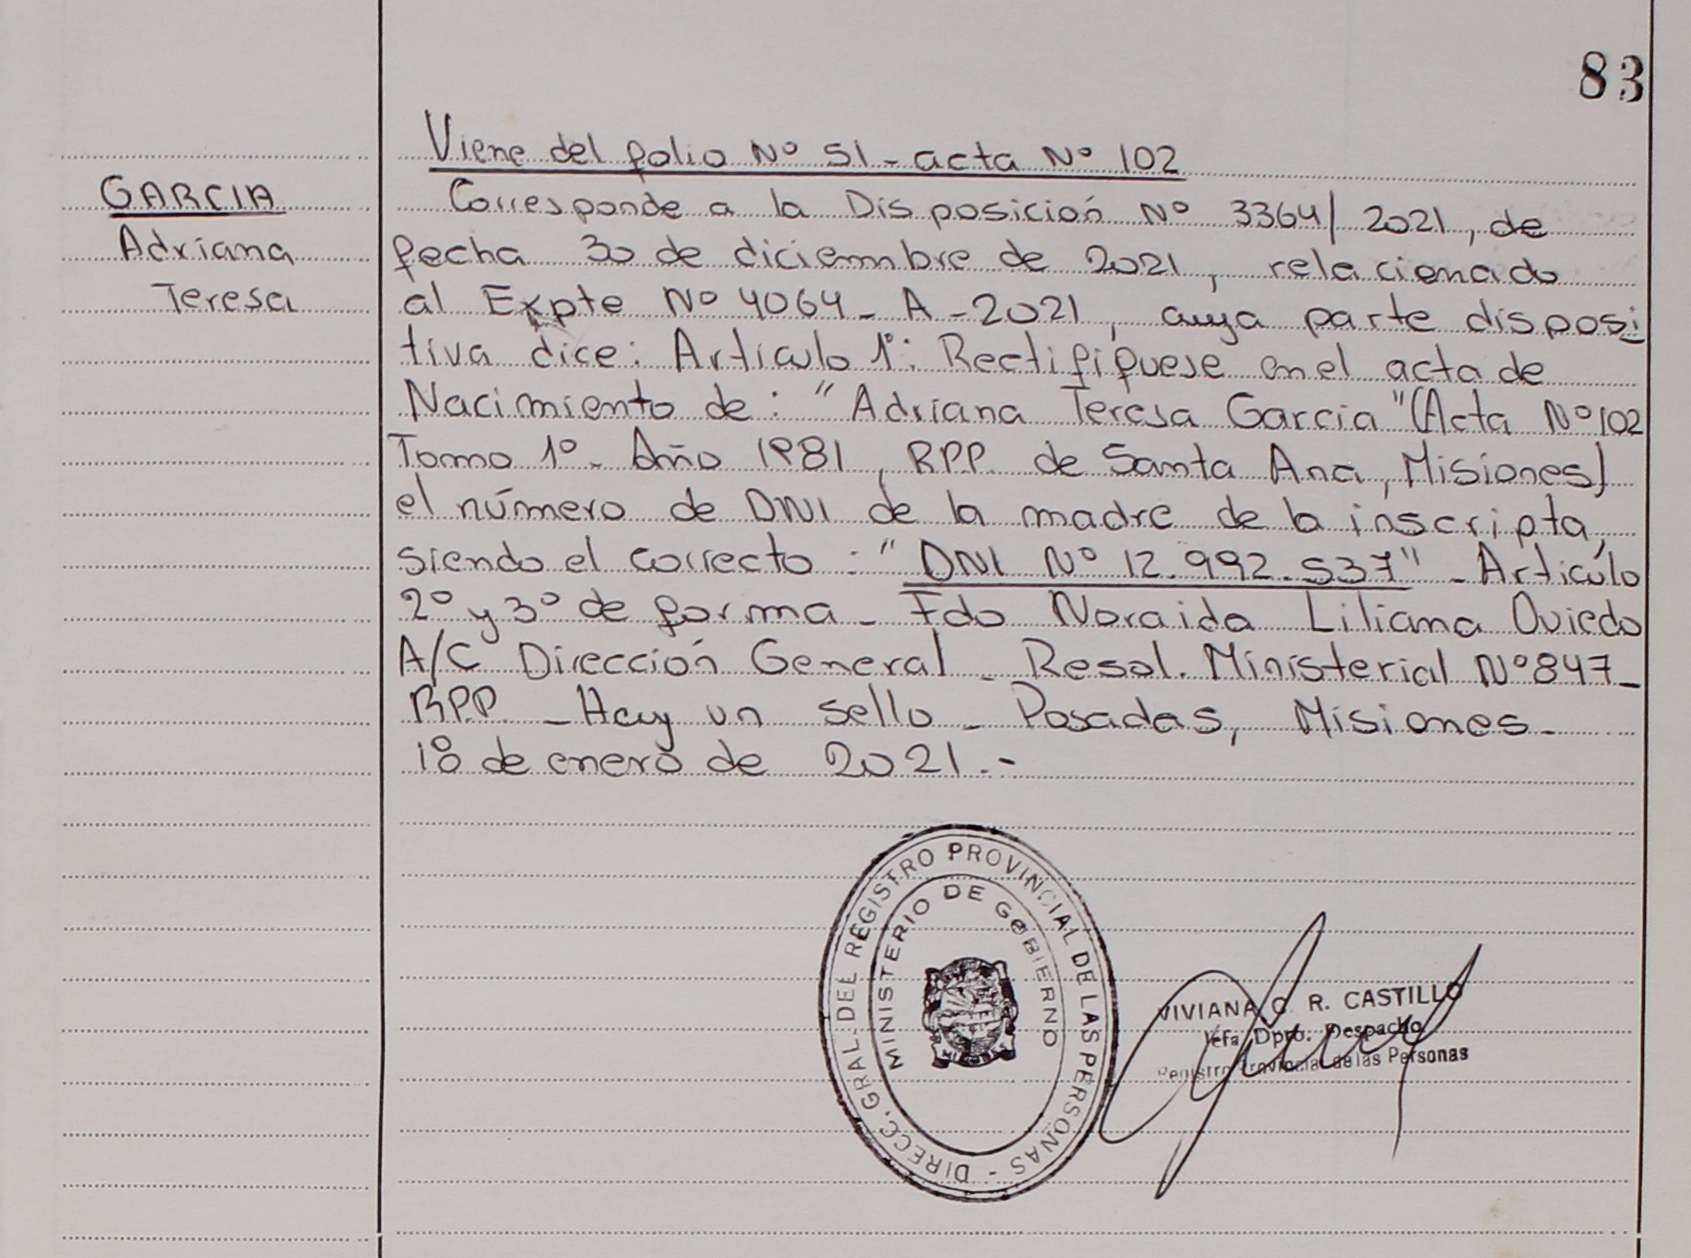 83
Viene del folio Nº 51 - acta Nº 102
GARCIA
Adriana
Teresa
Corresponde a la Disposición Nº 3364/2021, de
fecha 30 de diciembre de 2021, relacionado
al Expte Nº 4064 - A - 2021, cuya parte disposi
tiva dice: Artículo 1º: Rectifíquese en el acta de
Nacimiento de: "Adriana Teresa Garcia" (Acta Nº 102
Tomo 1º - Año 1981, RPP. de Santa Ana, Misiones)
el número de DNI de la madre de la inscripta,
siendo el correcto: "DNI Nº 12.992.537" - Artículo
2º y 3º de forma - Fdo Noraida Liliana Oviedo
A/C Dirección General - Resol. Ministerial Nº 847 -
RPP. - Hay un sello - Posadas, Misiones -
18 de enero de 2021.-
DIRECC. GRAL. DEL REGISTRO PROVINCIAL DE LAS PERSONAS -
MINISTERIO DE GOBIERNO
VIVIANA C. R. CASTILLO
Jefa Dpto. Despacho
Registro Provincial de las Personas